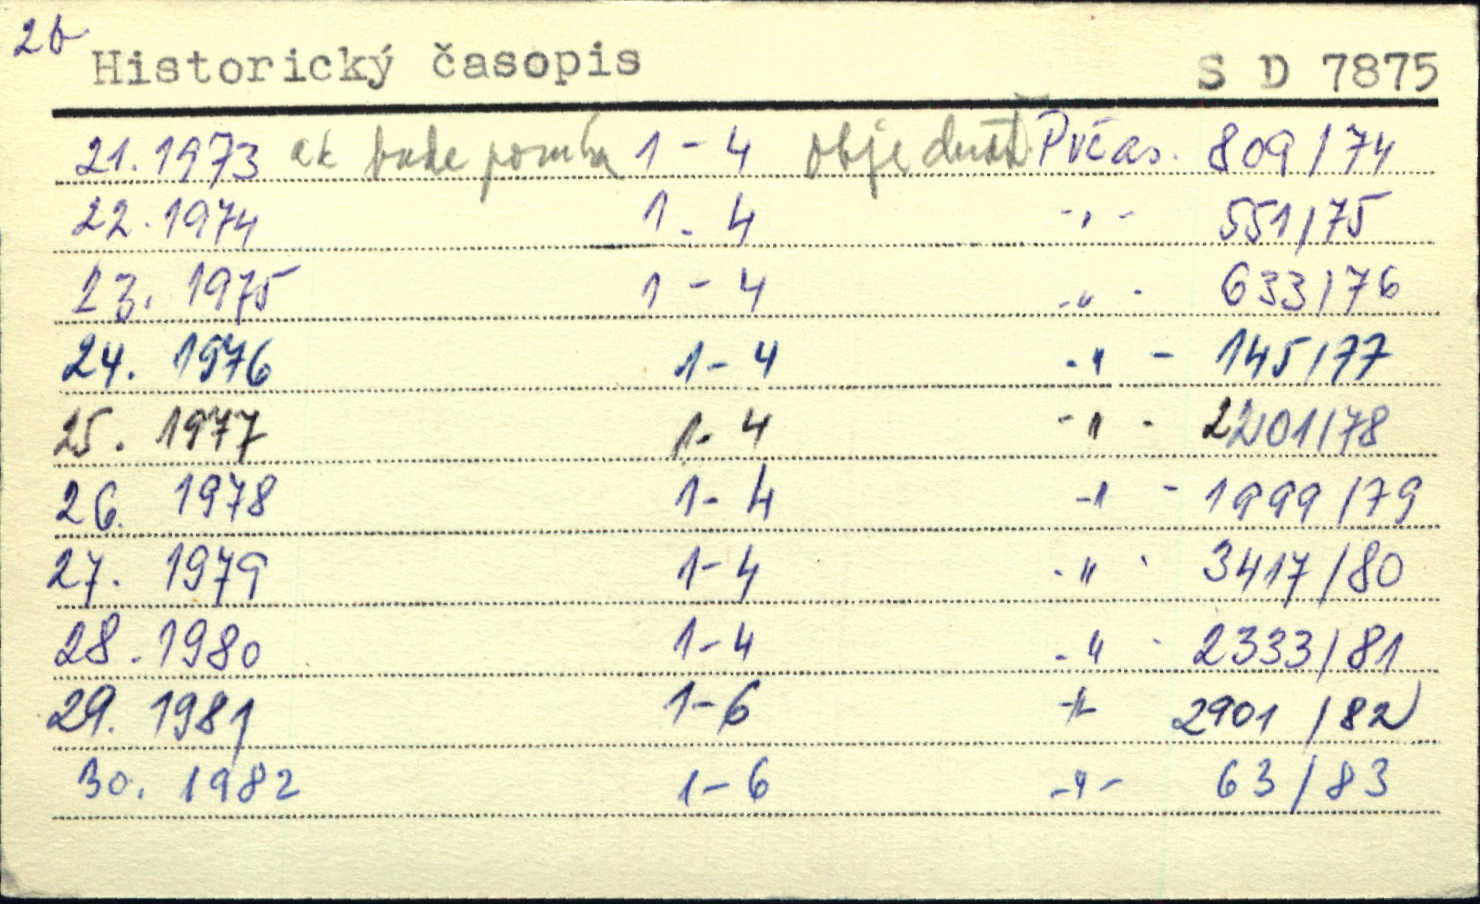 2b
Historický časopis S D 7875
21. 1973 ak bude 1-4 objednať Pvčas. 809/74
22. 1974 1-4 -"- 551/75
23. 1975 1-4 -"- 633/76
24. 1976 1-4 -"- 145/77
25. 1977 1-4 -"- 2201/78
26. 1978 1-4 -"- 1999/79
27. 1979 1-4 -"- 3417/80
28. 1980 1-4 -"- 2333/81
29. 1981 1-6 -"- 2901/82
30. 1982 1-6 -"- 63/83